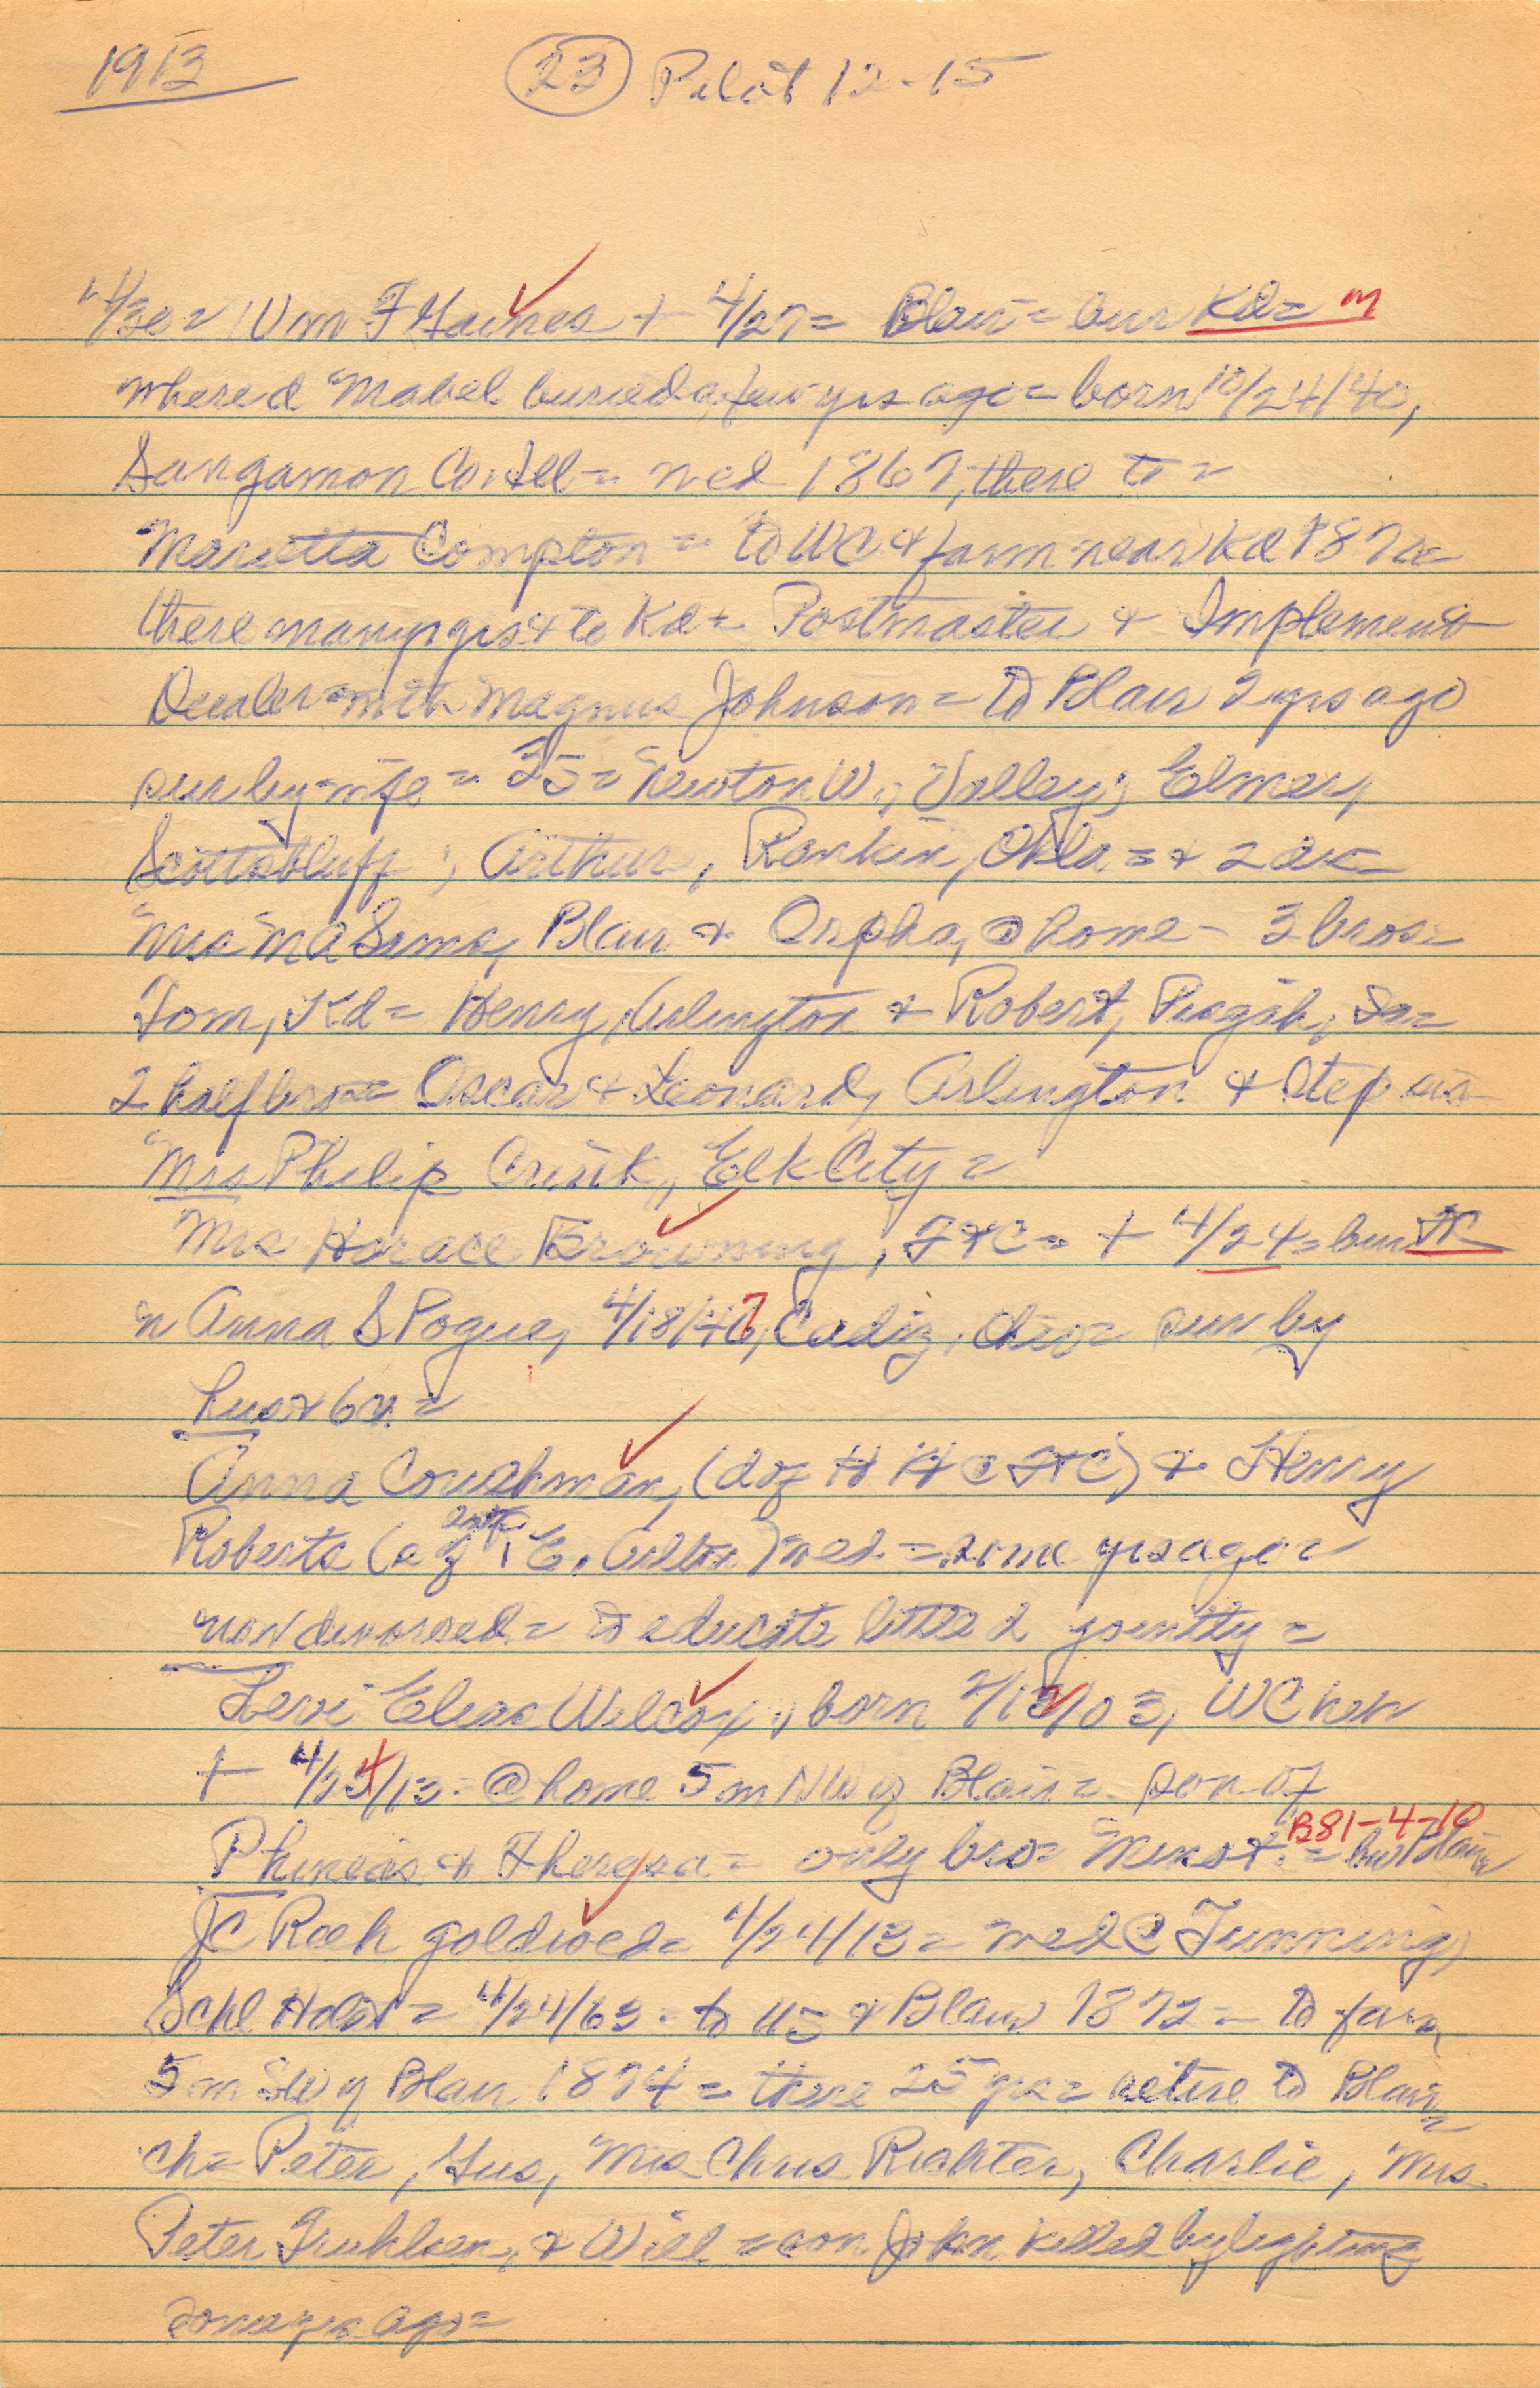 1913 (23) Pilot 12-15
4/30 = Wm F Gaines + 4/27 = Blair = bur Kd = m
where d Mabel buried a few yrs ago = born 10/24/40,
Sangamon Co. Ill = wed 1867, there to =
Marietta Compton = to WC & farm near Kd 187
there many yrs & to Kd = Postmaster & Implement
Dealer with Magnus Johnson = to Blair 2 yrs ago
sur by wife = 3s = Newton W., Valley; Elmer,
Scottsbluff; Arthur, Rankin, Okla = & 2 ds =
Mrs M A Sims, Blair & Orpha, @ home - 3 bros =
Tom, Kd = Henry, Arlington & Robert, Pisgah, Ia =
2 half bros = Oscar & Leonard, Arlington & Step sis
Mrs Philip Crink, Elk City =
Mrs Horace Browning, FtC = + 4/24 = bur FtC
n Anna S Pogue, 4/18/467, Cadiz, Ohio = sur by
hus & 6
Anna Coushman, (d of H H @ FtC) & Henry
Roberts (s of Rev. E. Arltn) wed. = some yrs ago =
now divorced = to educate little d jointly =
Levi Elias Wilcox, born 2/12/03, WC Neb
+ 4/24/13 = @ home 5 m NW of Blair = son of
Phineas & Theresa = only bro = = bur Blair B81-4-10
JC Roeh gold wed = 4/24/13 = wed C Tumming,
Schl Holst = 4/24/63 = to US & Blair 1872 = to farm
5 m SW of Blair 1874 = there 25 yrs = retire to Blair =
ch = Peter, Gus, Mrs Chris Richter, Charlie, Mrs
Peter Gruhlsen, & Will = son John killed by lightning
some yrs ago =